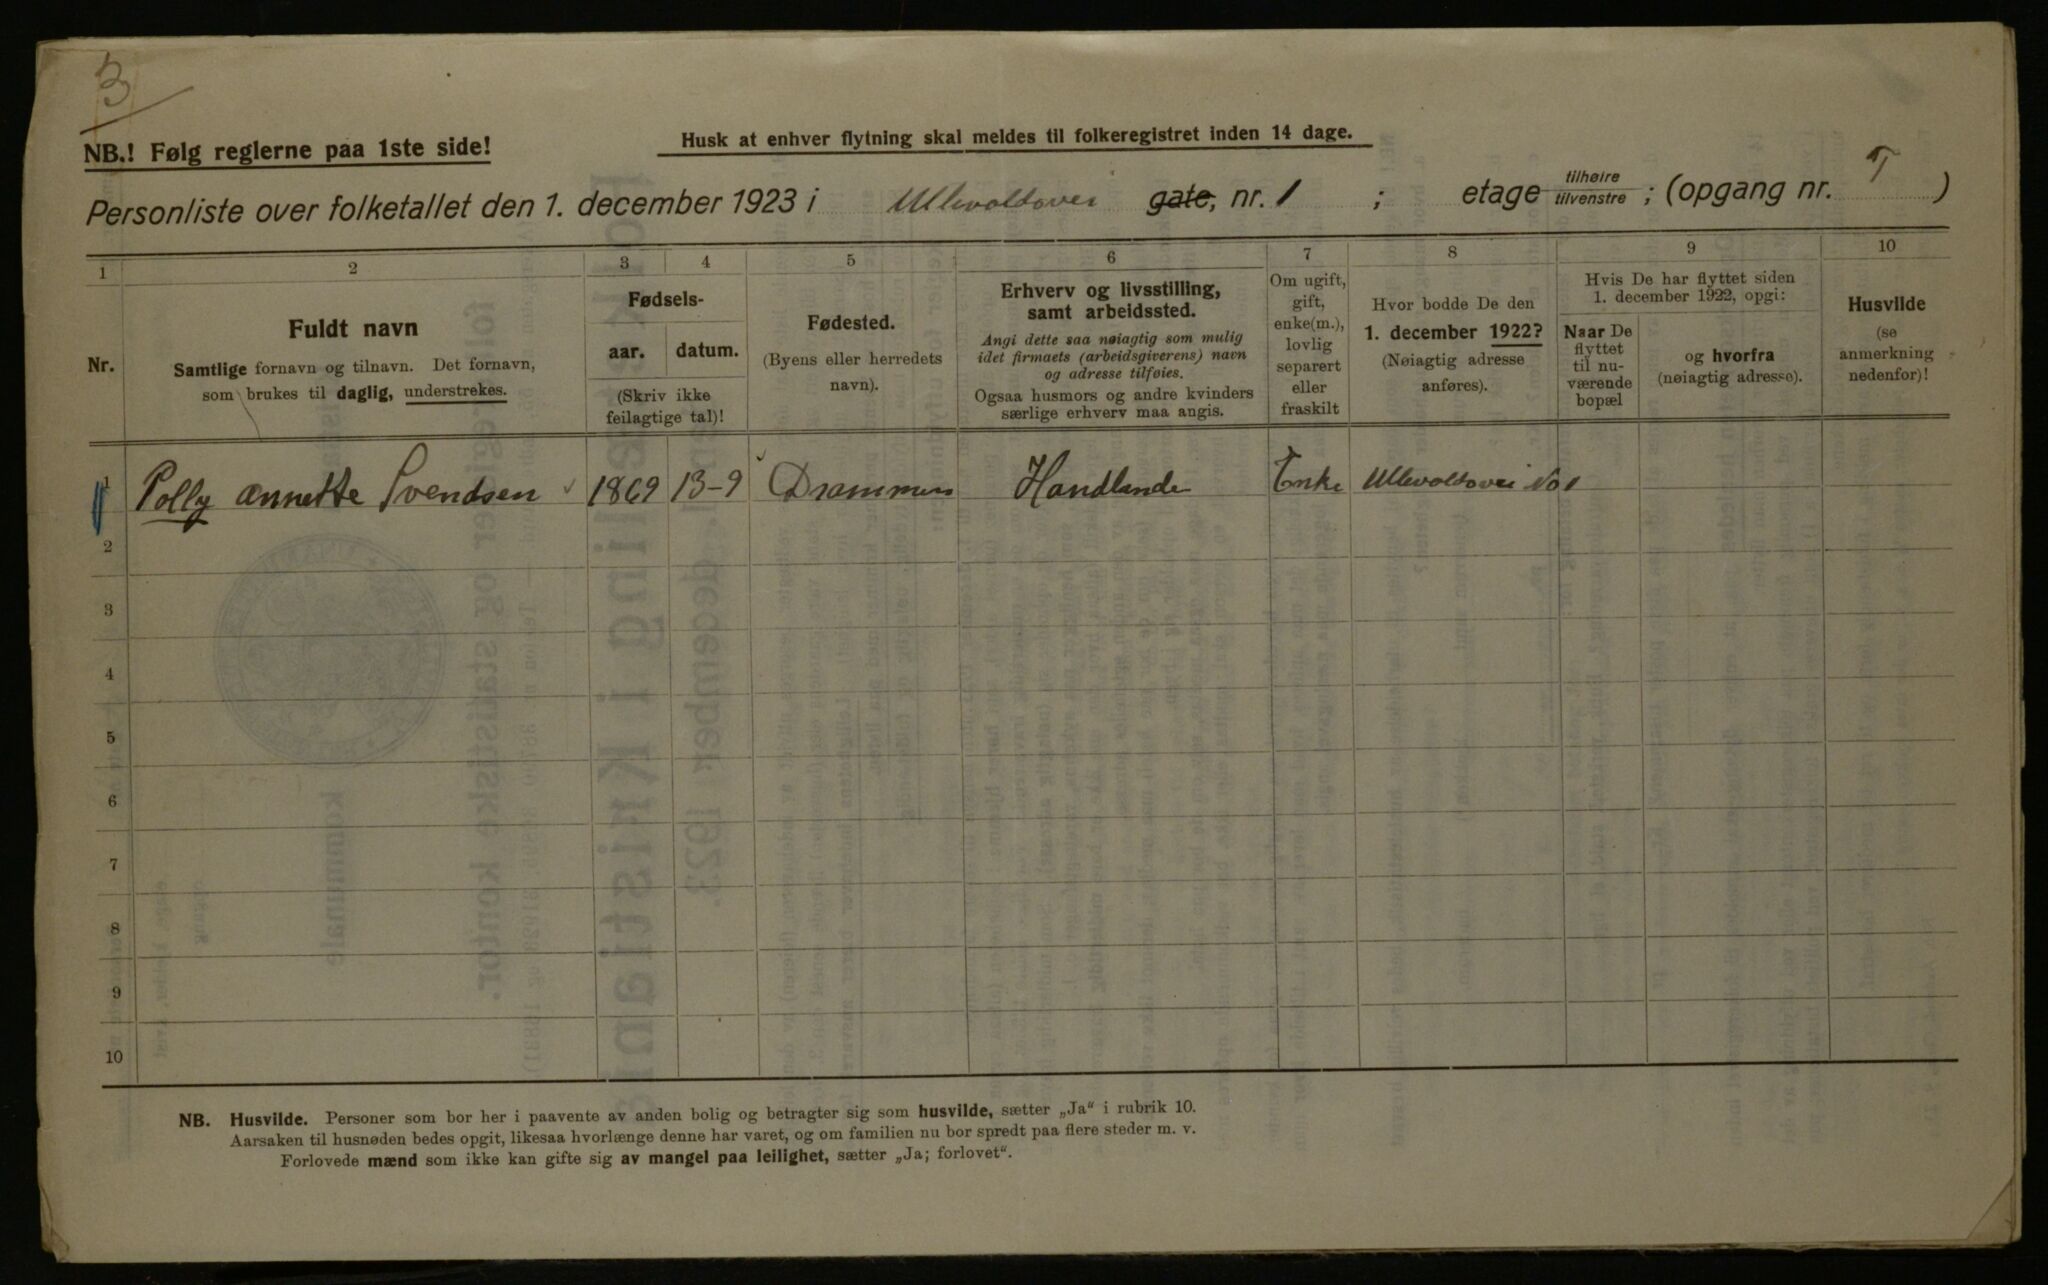 3
NB.! Følg reglerne paa 1ste side!
Husk at enhver flytning skal meldes til folkeregistret inden 14 dage.
Personliste over folketallet den 1. december 1923 i Ullevoldsvei gate, nr. 1 ; etage tilhøire tilvenstre ; (opgang nr. T )
1 2 3 4 5 6 7 8 9 10
Nr.
Fuldt navn
Samtlige fornavn og tilnavn. Det fornavn,
som brukes til daglig, understrekes.
Fødsels-
aar. datum.
(Skriv ikke
feilagtige tal)!
Fødested.
(Byens eller herredets
navn).
Erhverv og livsstilling,
samt arbeidssted.
Angi dette saa nøiagtig som mulig
idet firmaets (arbeidsgiverens) navn
og adresse tilføies.
Ogsaa husmors og andre kvinders
særlige erhverv maa angis.
Om ugift,
gift,
enke(m.),
lovlig
separert
eller
fraskilt
Hvor bodde De den
1. december 1922?
(Nøiagtig adresse
anføres).
Hvis De har flyttet siden
1. december 1922, opgi:
Naar De
flyttet
til nu-
værende
bopæl
og hvorfra
(nøiagtig adresse).
Husvilde
(se
anmerkning
nedenfor)!
1 Polly Annette Svendsen 1869 13-9 Drammen Handlende Enke Ullevoldsvei No 1
2
3
4
5
6
7
8
9
10
NB. Husvilde. Personer som bor her i paavente av anden bolig og betragter sig som husvilde, sætter „Ja“ i rubrik 10.
Aarsaken til husnøden bedes opgit, likesaa hvorlænge denne har varet, og om familien nu bor spredt paa flere steder m. v.
Forlovede mænd som ikke kan gifte sig av mangel paa leilighet, sætter „Ja; forlovet“.